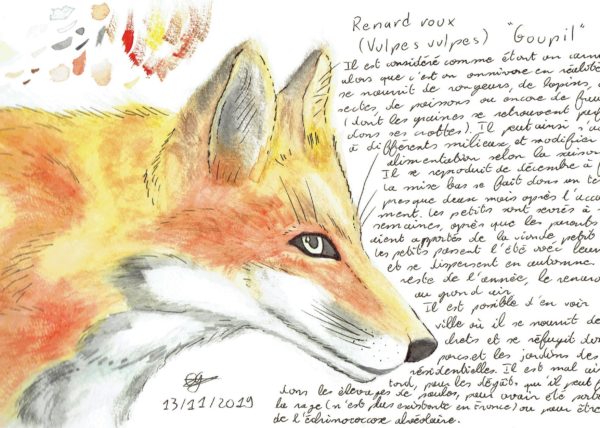 Renard roux
(Vulpes vulpes) "Goupil"
Il est considéré comme étant un carni
alors que c'est un omnivore en réalité
se nourrit de rongeurs, de lapins,
sectes, de poissons ou encore de frui
(dont les graines se retrouvent parf
dans ses crottes). Il peut ainsi s'a
à différents milieux, et modifier
alimentation selon la saison
Il se reproduit de décembre à
La mise bas se fait dans un te
presque deux mois après l'acco
ment. Les petits sont sevrés à
semaines, après que les parents
aient apportés de la viande petit
Les petits passent l'été avec leur
et se dispersent en automne.
reste de l'année, le renard
au grand air.
Il est possible d'en voir
ville où il se nourrit de
chets et se réfugie dan
parcs et les jardins des
résidentielles. Il est mal ai
tord, pour les dégâts qu'il peut f
dans les élevages de poules, pour avoir été port
la rage (n'est plus existante en France) ou pour être
de l'échinococcose alvéolaire.
13/11/2019